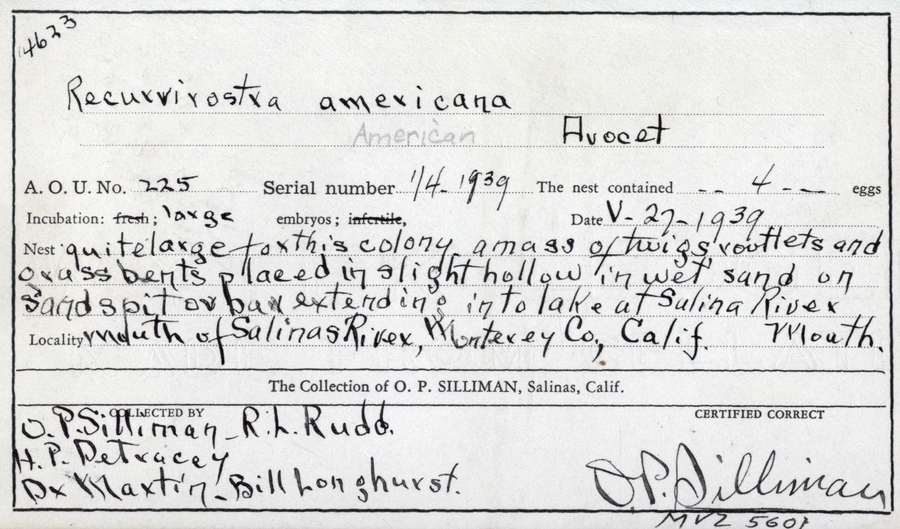 4623
Recurvirostra americana
American Avocet
A. O. U. No. 225 Serial number 1/4-1939 The nest contained -- 4 -- eggs
Incubation: fresh; large embryos; infertile, Date V-27-1939
Nest quite large for this colony a mass of twigs rootlets and
grass bents placed in slight hollow in wet sand on
sand spit or bar extending into lake at Salina River
Locality mouth of Salinas River, Monterey Co, Calif. Mouth.
The Collection of O. P. SILLIMAN, Salinas, Calif.
COLLECTED BY CERTIFIED CORRECT
O. P. Silliman - R. L. Rudd.
H. P. Detracey
Dr Martin - Bill Longhurst.
O. P. Silliman
MVZ 5601